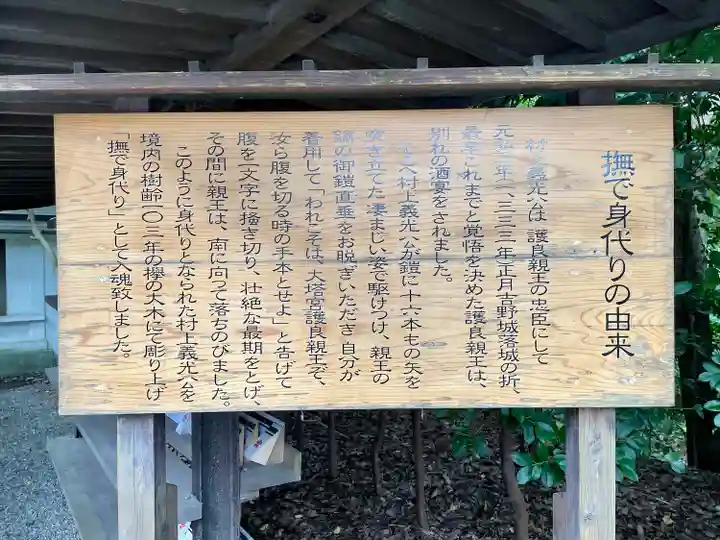 撫で身代りの由来
村上義光公は、護良親王の忠臣にして
元弘三年(一、三三三年)正月吉野城落城の折、
最早これまでと覚悟を決めた護良親王は、
別れの酒宴をされました。
そこへ村上義光公が鎧に十六本もの矢を
突き立てた凄まじい姿で駆けつけ、親王の
錦の御鎧直垂をお脱ぎいただき自分が
着用して「われこそは、大塔宮護良親王ぞ、
汝ら腹を切る時の手本とせよ」と告げて
腹を一文字に掻き切り、壮絶な最期をとげ、
その間に親王は、南に向って落ちのびました。
このように身代りとなられた村上義光公を
境内の樹齢一〇三年の欅の大木にて彫り上げ
「撫で身代り」として入魂致しました。